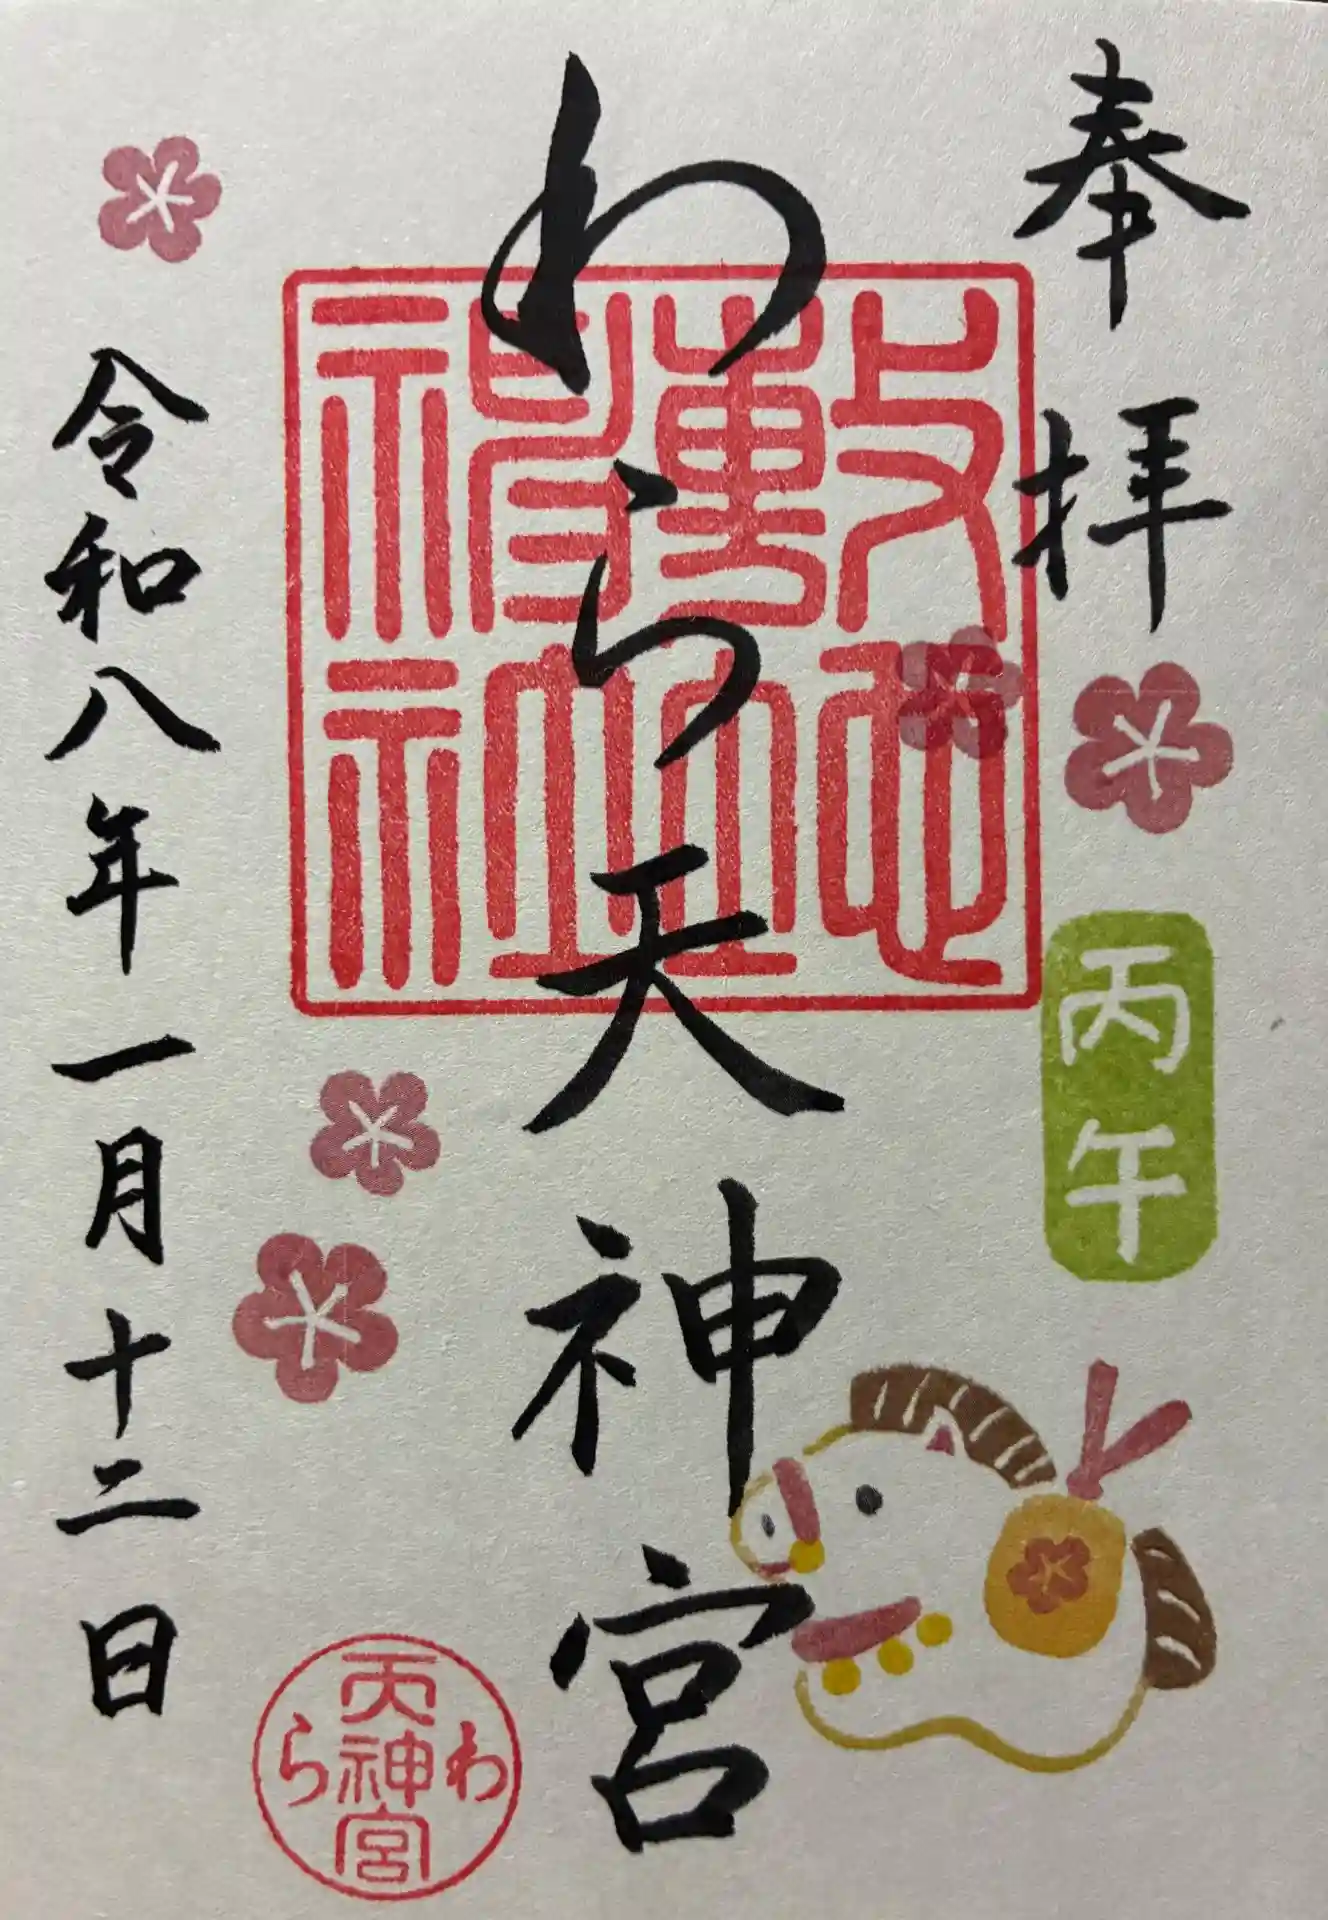 奉拝
丙午
わら天神宮
敷地
神社
令和八年一月十二日
わら
天神宮